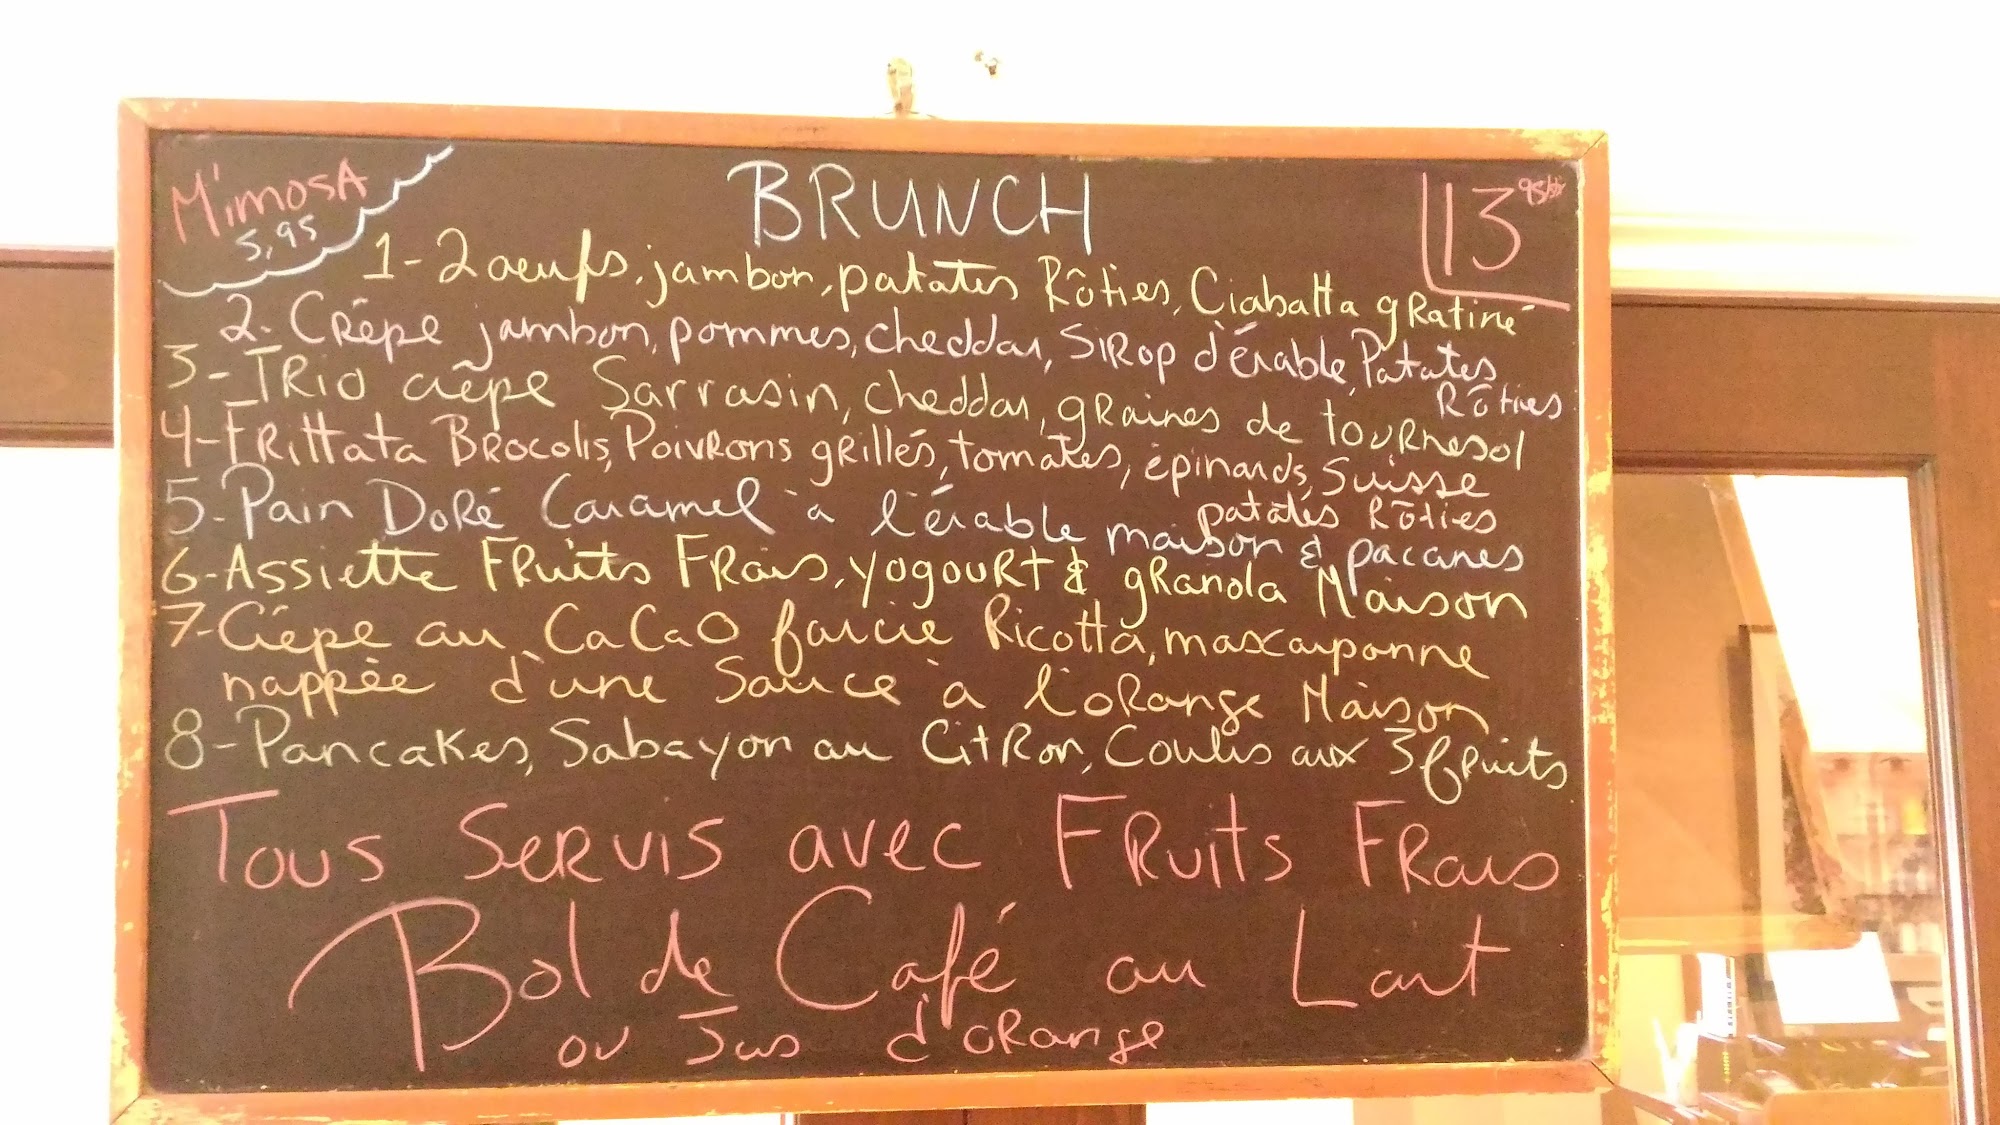 BRUNCH
M'imosA
5,95
13
1-2 oeufs, jambon, patates Rôties, Ciabatta gRatiné
2- Crêpe jambon, pommes, cheddar, SiRop d'érable, Patates
Rôties
3-TRio crêpe Sarrasin, cheddar, gRaines de touRnesol
4-FRittata BRocolis, PoivRons gRillés, tomates, épinards, Suisse
patates Rôties
5-Pain DoRé Caramel à l'érable maison & pacanes
6-Assiette FRuits FRais, yogouRt & gRanola Maison
7-Crêpe au CaCaO farcie Ricotta, mascarponne
nappée d'une Sauce à l'oRange Maison
8-Pancakes, Sabayon au CitRon, Coulis aux 3 fRuits
Tous SeRvis avec FRuits FRais
Bol de Café au Lait
ou Jus d'oRange